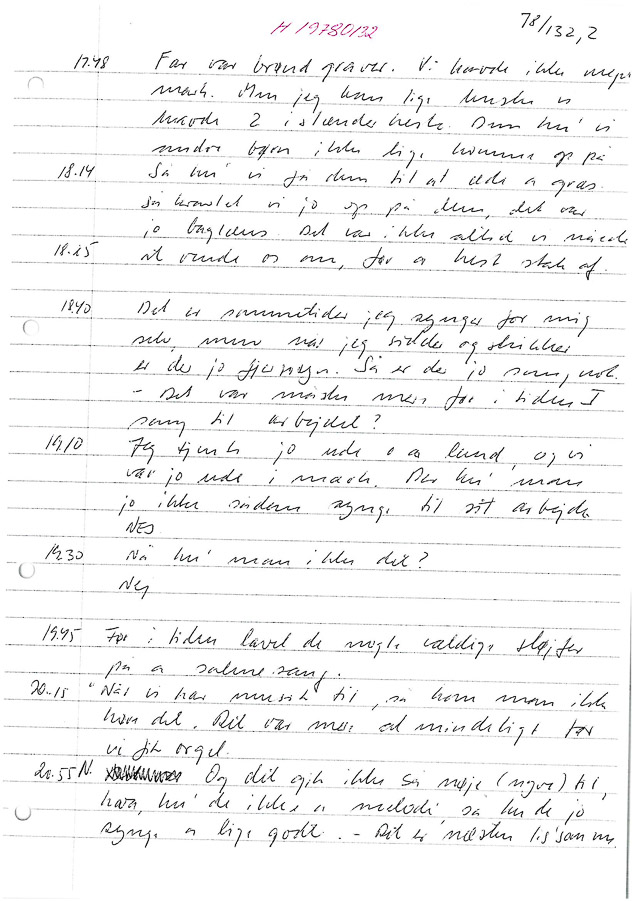 H 19780132
78/132,2
17.48 Far var brøndgraver. Vi havde ikke megen
mark. Men jeg kan lige huske vi
havde 2 islænderheste. Dem ku' vi
andre børn ikke lige komme op på
18.14 Så ku' vi få dem til at æde a græs.
så kravlet vi jo op på dem, det var
jo baglæns. Det var ikke altid vi nåede
18.25 at vende os om, før a hest stak af.
18.40 Det er sommetider jeg synger for mig
selv, men når jeg sidder og strikker
er der jo fjernsyn. Så er der jo sang nok.
- Det var måske mere før i tiden I
sang til arbejdet?
19.10 Jeg tjente jo ude o a land, og vi
var jo ude i mark. Der ku' man
jo ikke sådern synge til sit arbejde
NEJ
19.30 Nå ku' man ikke det?
Nej
19.45 Før i tiden lavet de nogle vældige sløjfer
på a salmesang.
20.15 "Når vi har musik til, så kan man ikke
høre det. Det var mere almindeligt før
vi fik orgel.
20.55 N. Og det gik ikke så nøje (nyve) til,
hva, ku' de ikke a melodi, så ku de jo
synge a lige godt. - Det er næsten lis'som nu